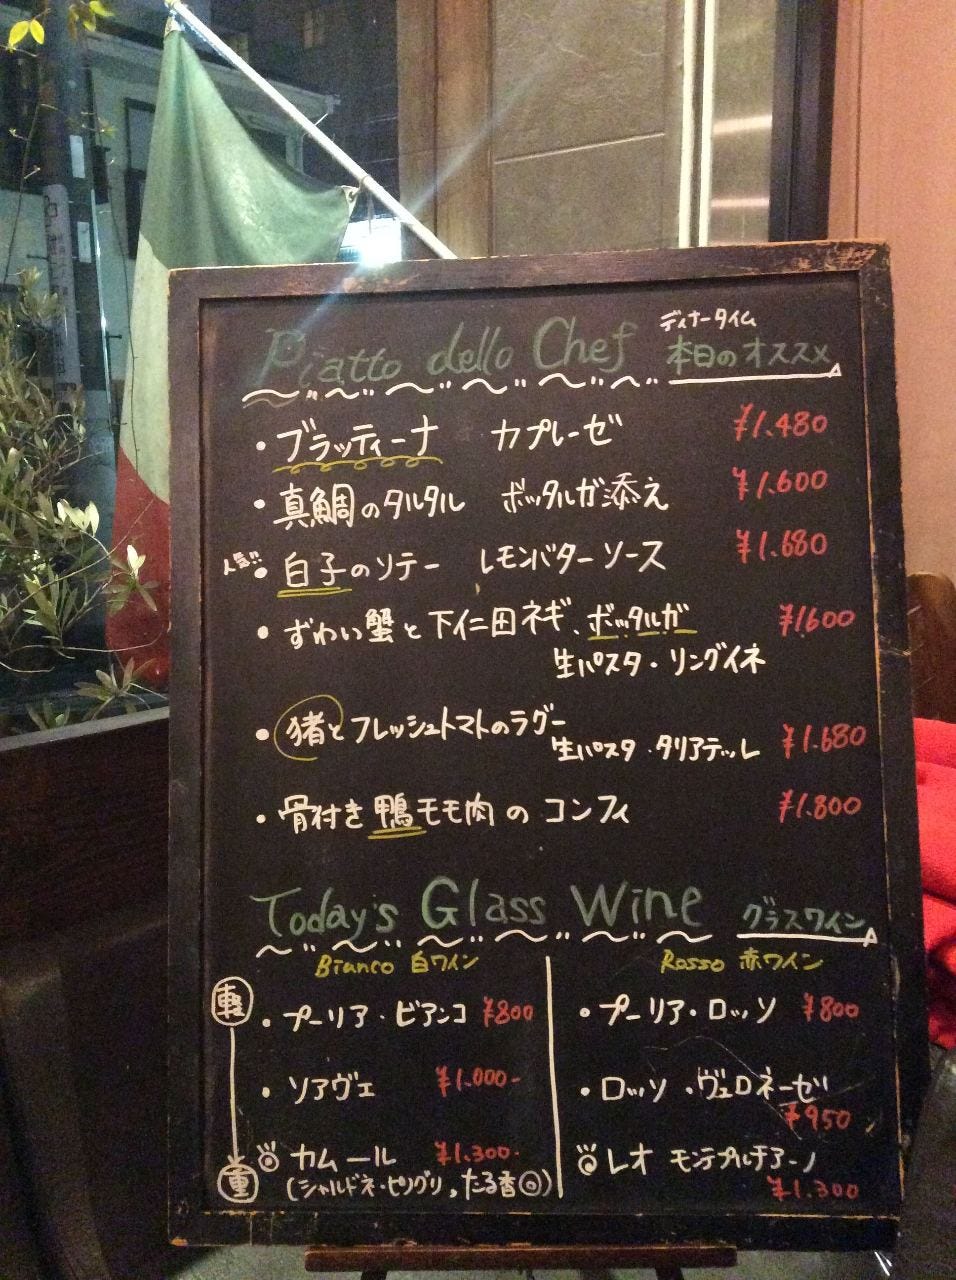 ディナータイム
Piatto dello Chef 本日のオススメ
・ブラッティーナ カプレーゼ ¥1.480
・真鯛のタルタル ボッタルガ添え ¥1.600
人気!!
・白子のソテー レモンバターソース ¥1.680
・ずわい蟹と下仁田ネギ、ボッタルガ ¥1600
生パスタ・リングイネ
・猪とフレッシュトマトのラグー
生パスタ・タリアテッレ ¥1.680
・骨付き鴨モモ肉のコンフィ ¥1.800
Today's Glass Wine グラスワイン
Bianco 白ワイン
軽
・プーリア・ビアンコ ¥800
・ソアヴェ ¥1.000-
◎カムール ¥1.300-
重
(シャルドネ・ピノグリ,たる香◎)
Rosso 赤ワイン
・プーリア・ロッソ ¥800
・ロッソ・ヴェロネーゼ
¥950
◎レオ モンテプルチアーノ
¥1.300